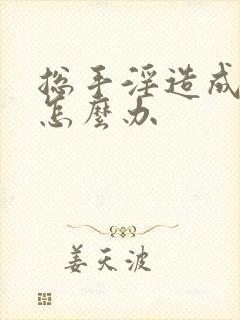 总手淫造成
怎麼办
姜天波